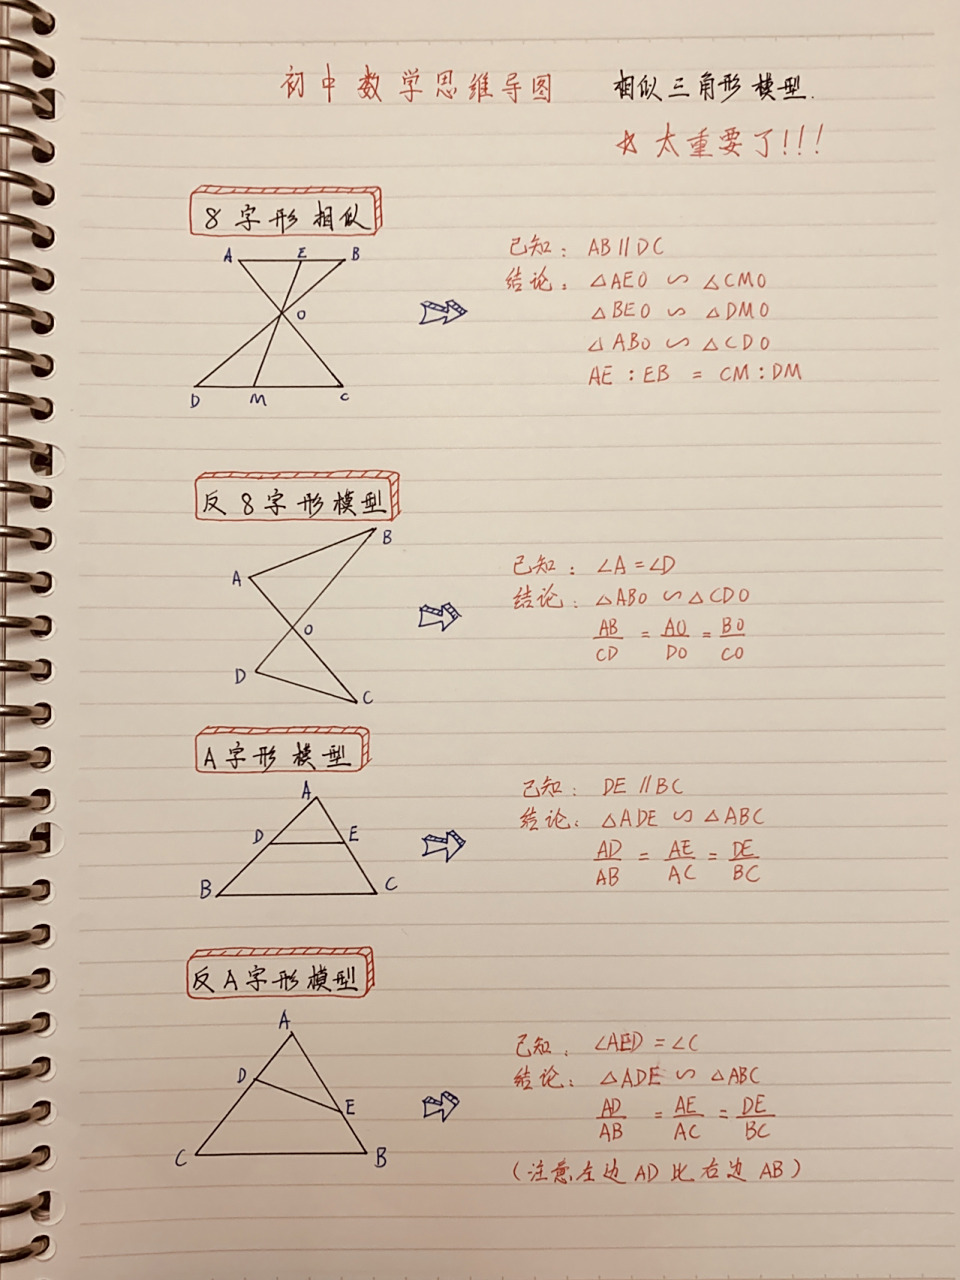 初中数学思维导图 相似三角形模型.
☆ 太重要了!!!
8字形相似
A E B
O
D M C
已知: AB∥DC
结论: △AEO ∽ △CMO
△BEO ∽ △DMO
△ABO ∽ △CDO
AE : EB = CM : DM
反8字形模型
B
A
O
D
C
已知: ∠A=∠D
结论: △ABO ∽ △CDO
AB/CD = AO/DO = BO/CO
A字形模型
A
D E
B C
已知: DE∥BC
结论: △ADE ∽ △ABC
AD/AB = AE/AC = DE/BC
反A字形模型
A
D
E
C B
已知: ∠AED=∠C
结论: △ADE ∽ △ABC
AD/AB = AE/AC = DE/BC
(注意左边AD比右边AB)